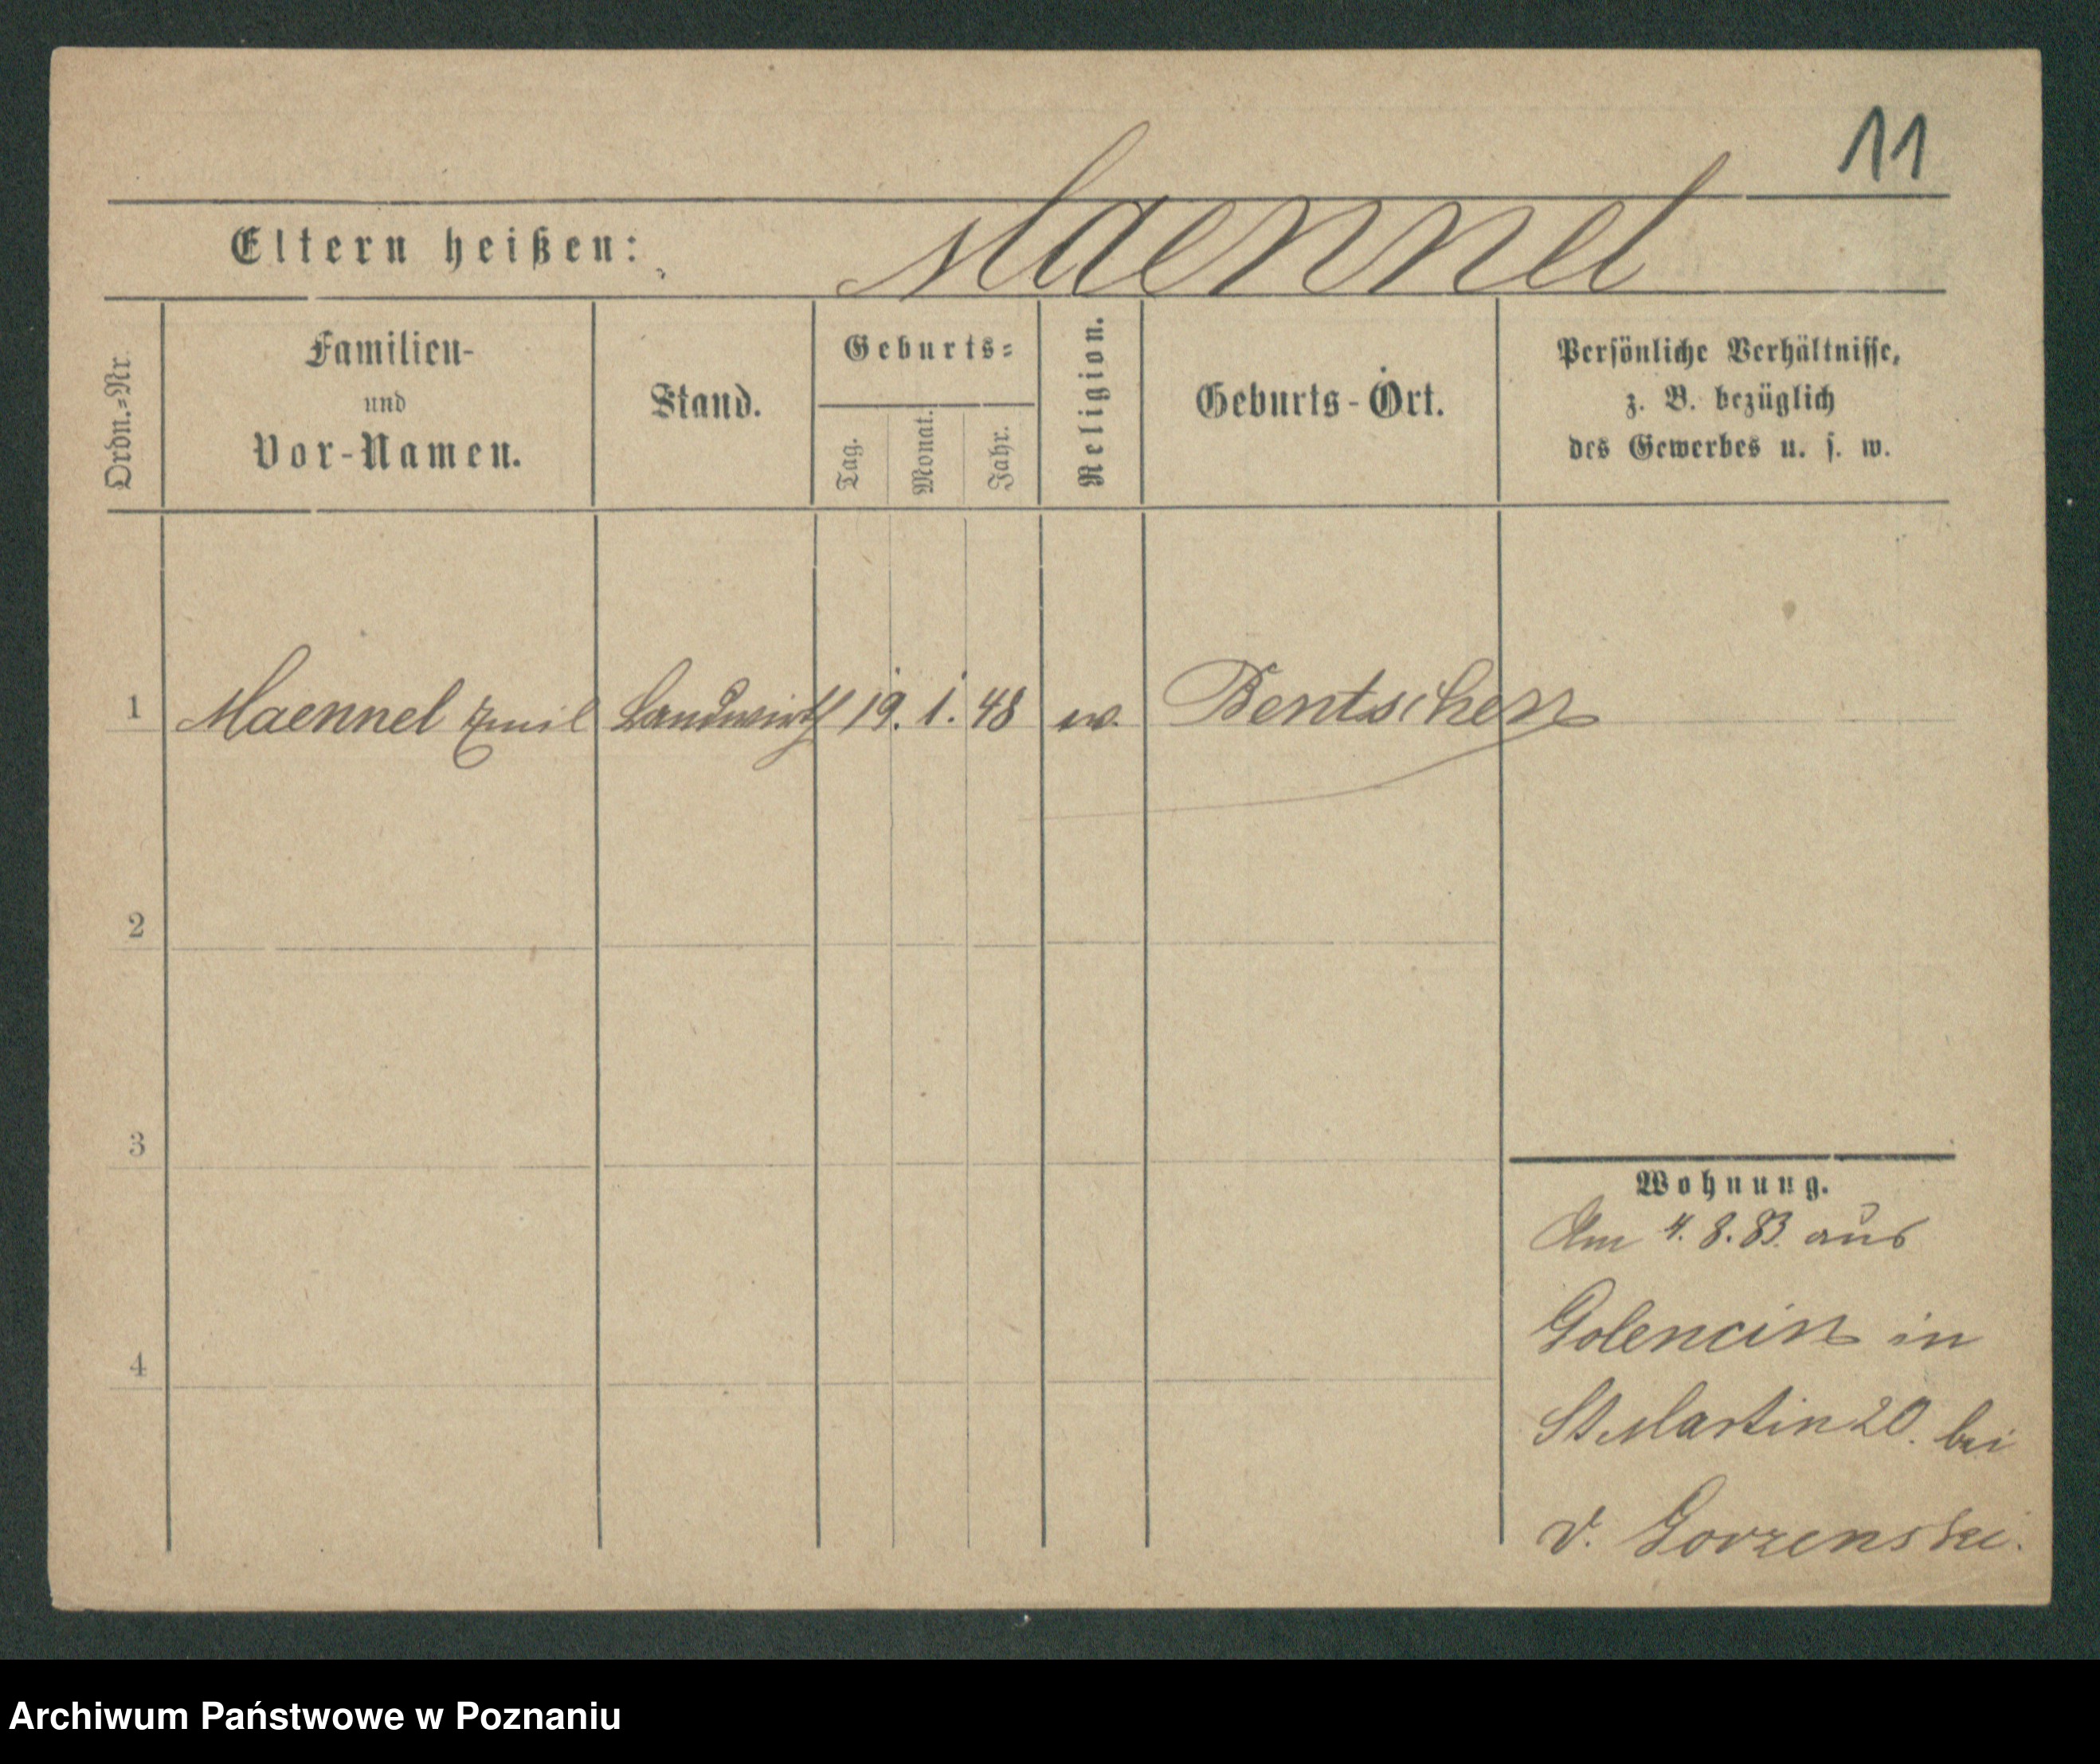 11
Eltern heißen: Maennel
Ordn.=Nr.
Familien-
und
Vor-Namen.
Stand.
Geburts=
Tag.
Monat.
Jahr.
Religion.
Geburts-Ort.
Persönliche Verhältnisse,
z. B. bezüglich
des Gewerbes u. s. w.
1 Maennel Emil Landwirth 19. 1. 48 ev. Bentschen
2
3
4
Wohnung.
Am 4. 8. 83. aus
Golencin in
St Martin 20. bei
v. Gorzenski.
Archiwum Państwowe w Poznaniu